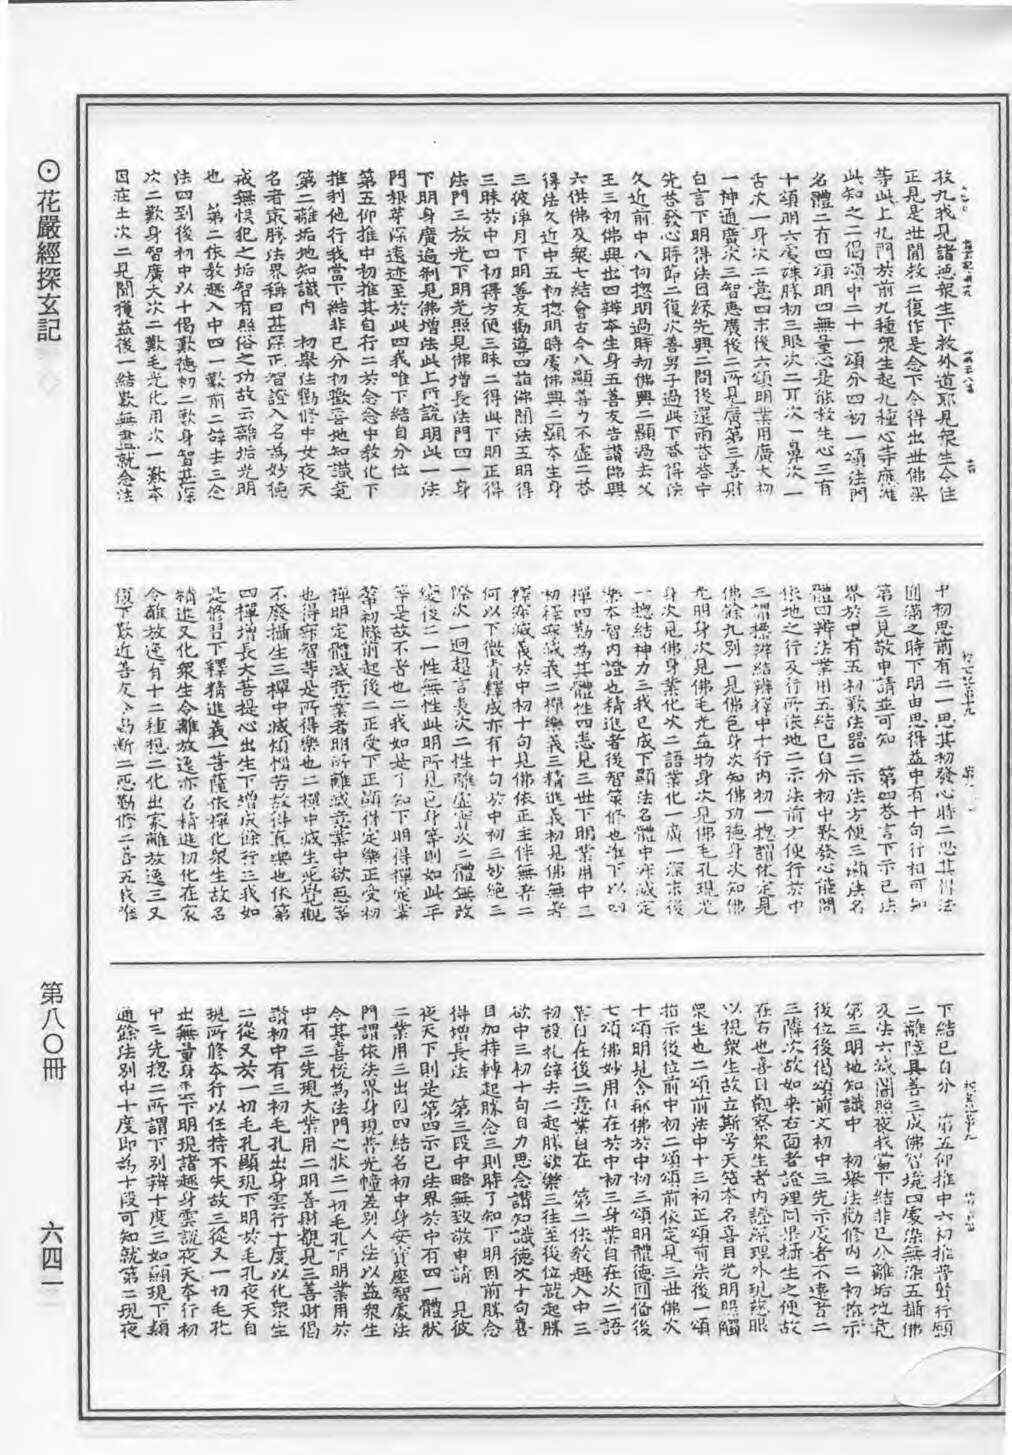 ⊙花嚴經探玄記
第八〇冊
六四二
故九我見諸惡衆生下救外道邪見衆生令住
正見是世間救二復作是念下令得出世佛果
等此上九門於前九種衆生起九種心等應准
此知之二偈頌中二十一頌分四初一頌法門
名體二有四頌明四無量心是能救生心三有
十頌明六處殊勝初三眼次二耳次一鼻次一
舌次一身次二意四末後六頌明業用廣大初
一神通廣次三智惠廣後二所見廣第三善財
白言下明得法因緣先興二問後還兩荅荅中
先荅發心時節二復次善男子過此下荅得法
久近前中八初揔明過時劫佛興二顯過去父
王三初佛興出四辨本生身五善友告讚佛興
六供佛及衆七結會古今八顯善力不虛二荅
得法久近中五初揔明時處佛興二顯本生身
三彼淨月下明善友勸導四詣佛聞法五明得
三昧於中四初得方便三昧二得此下明正得
法門三放光下明光照見佛增長法門四一身
下明身廣遍剎見佛增法此上所說明此一法
門根莘深遠迹至於此四我唯下結自分位
第五仰推中初推其自行二於念念中教化下
推利他行我當下結非已分初歡喜地知識竟
第二離垢地知識內　初舉法勸修中女夜天
名者取勝法界稱曰甚深正智證入名為妙德
戒無悞犯之垢智有照俗之功故云離垢光明
也　第二依教趣入中四一歎前二辞去三念
法四到後初中以十偈歎德初二歎身智甚深
次二歎身智廣大次二歎毛光化用次一歎本
因在土次二見聞獲益後一結歎無盡就念法
中初思前有二一思其初發心時二思其得法
圓滿之時下明由思得益中有十句行相可知
第三見敬申請並可知　第四荅言下示已法
界於中有五初歎法器二示法方便三顯法名
體四辨法業用五結已自分初中歎發心能問
依地之行及行所依地二示法前方便行於中
三謂標辨結辨釋中十行內初一揔謂依定見
佛餘九別一見佛色身次知佛功德身次知佛
光明身次見佛毛光益物身次見佛毛孔現光
身次見佛身業化次二語業化一廣一深末後
一揔結神力三我已成下顯法名體中寂滅定
樂本智內證也精進者後智策修也准下以四
禪四勤為其體性四悉見三世下明業用中二
初釋寂滅義二禪樂義三精進義初見佛無著
釋寂滅義於中初十句見佛依正主伴無著二
何以下徵責釋成亦有十句於中初三妙絕三
際次一迥超言表次二性離虛實次二體無改
變後二一性無性此明所見已身等則如此平
等是故不著也二我如是下知下明得禪定業
等初牒前起後二正受下正顯得定樂正受初
禪明定體滅意業者明所離滅意業中欲惡等
也得寂智等是所得樂也二禪中滅生死覺觀
不廢攝生三禪中滅煩惱苦故得真樂也依第
四禪增長大菩提心出生下增成餘行三我如
是修習下釋精進義一菩薩依禪化衆生故名
精進又化衆生令離放逸亦名精進初化在家
令離放逸有十二種想二化出家離放逸三又
下結已自分　第五仰推中六初推普賢行願
二離障具善三成佛智境四處染無染五攝佛
及法六滅闇照夜我當下結非已分離垢地竟
第三明地知識中　初舉法勸修內二初指示
後位後偈頌前文初中三先示處者不違者二
三隣次故如來右面者證理同果攝生之便故
在右也喜目觀察衆生者內證深理外現慈眼
以視衆生故立斯号天竺本名喜目光明照觸
衆生也二頌前法中十三初正頌前法後一頌
指示後位前中初二頌頌前依定見三世佛次
十頌明見舍那佛於中初三頌明體德圓備後
七頌佛妙用自在於中初三身業自在次二語
業自在後二意業自在　第二依教趣入中三
初設礼辞去二起勝欲樂三往至後位就起勝
欲中三初十句自力思念讚知識德次十句喜
目加持轉起勝念三則時了知下明因前勝念
得增長法　第三段中略無致敬申請　見彼
夜天下則是第四示已法界於中有四一體狀
二業用三出因四結名初中身安寶座智處法
門謂依法界身現普光幢差別人法以益衆生
令其喜悅為法門之狀二一切毛孔下明業用於
中有三先現大業用二明善財觀見三善財偈
讚初中有三初毛孔出身雲行十度以化衆生
二從又於一切毛孔顯現下明於毛孔夜天自
現所修本行以任持不失故三從又一切毛孔
出無量身下明現諸趣身雲說夜天本行初
中三先揔二所謂下別辨十度三如顯現下類
通餘法別中十度即為十段可知就第二現夜